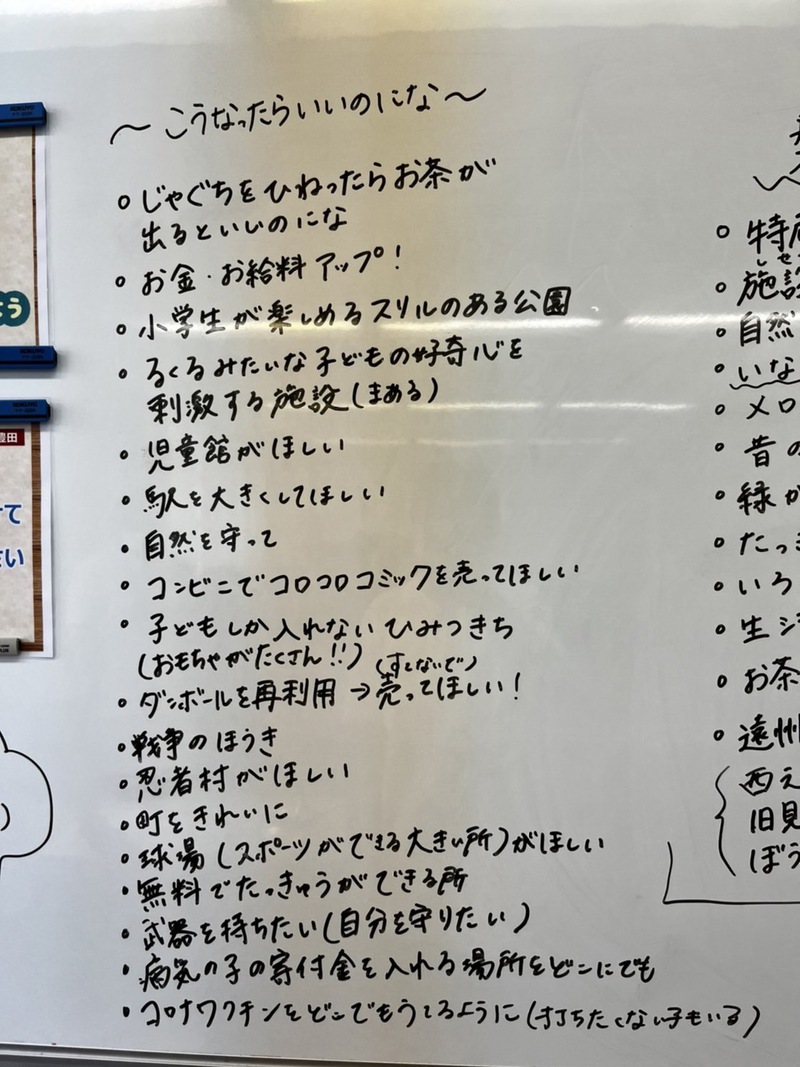 ～こうなったらいいのにな～
○じゃぐちをひねったらお茶が
出るといいのにな
○お金・お給料アップ！
○小学生が楽しめるスリルのある公園
○るくるみたいな子どもの好奇心を
刺激する施設(まある)
○児童館がほしい
○駅を大きくしてほしい
○自然を守って
○コンビニでコロコロコミックを売ってほしい
○子どもしか入れないひみつきち
(おもちゃがたくさん!!)
(すてないで)
○ダンボールを再利用→売ってほしい！
○戦争のほうき
○忍者村がほしい
○町をきれいに
○球場(スポーツができる大きい所)がほしい
○無料でたっきゅうができる所
○武器を持ちたい(自分を守りたい)
○病気の子の寄付金を入れる場所をどこにでも
○コロナワクチンをどこでもうてるように(打ちたくない子もいる)
○特
○施設
○自然
○いな
○メロ
○昔の
○緑が
○たっき
○いろ
○生シ
○お茶
○遠州
西え
旧見
ぼう
よう
豊田
けて
さい
KOKUYO
KOKUYO